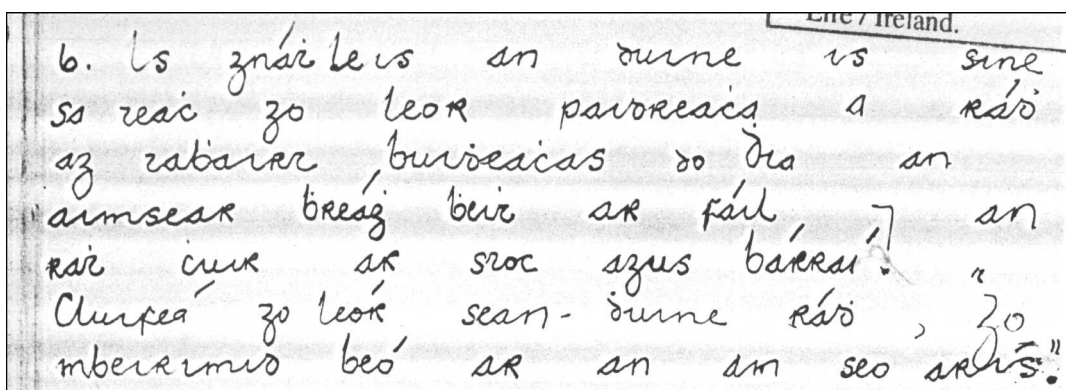 Éire / Ireland
6. Is gnát leis an duine is sine
sa teac go leor paidreaca a rád
ag tabairt buideacas do Dia an
aimsear breág beit ar fáil ⁊ an
rat cuir ar stoc agus barraí.
Cluifeá go leór sean-duine rád, "Go
mbeirimid beó ar an am seo arís."